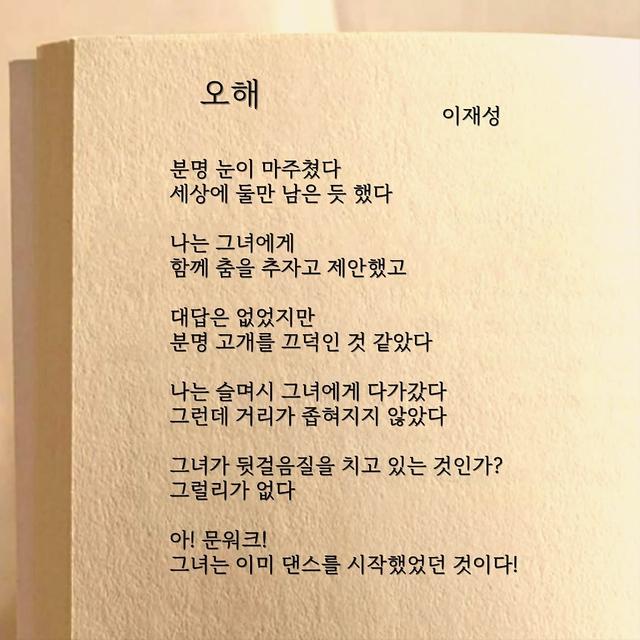 오해
이재성
분명 눈이 마주쳤다
세상에 둘만 남은 듯 했다
나는 그녀에게
함께 춤을 추자고 제안했고
대답은 없었지만
분명 고개를 끄덕인 것 같았다
나는 슬며시 그녀에게 다가갔다
그런데 거리가 좁혀지지 않았다
그녀가 뒷걸음질을 치고 있는 것인가?
그럴리가 없다
아! 문워크!
그녀는 이미 댄스를 시작했었던 것이다!